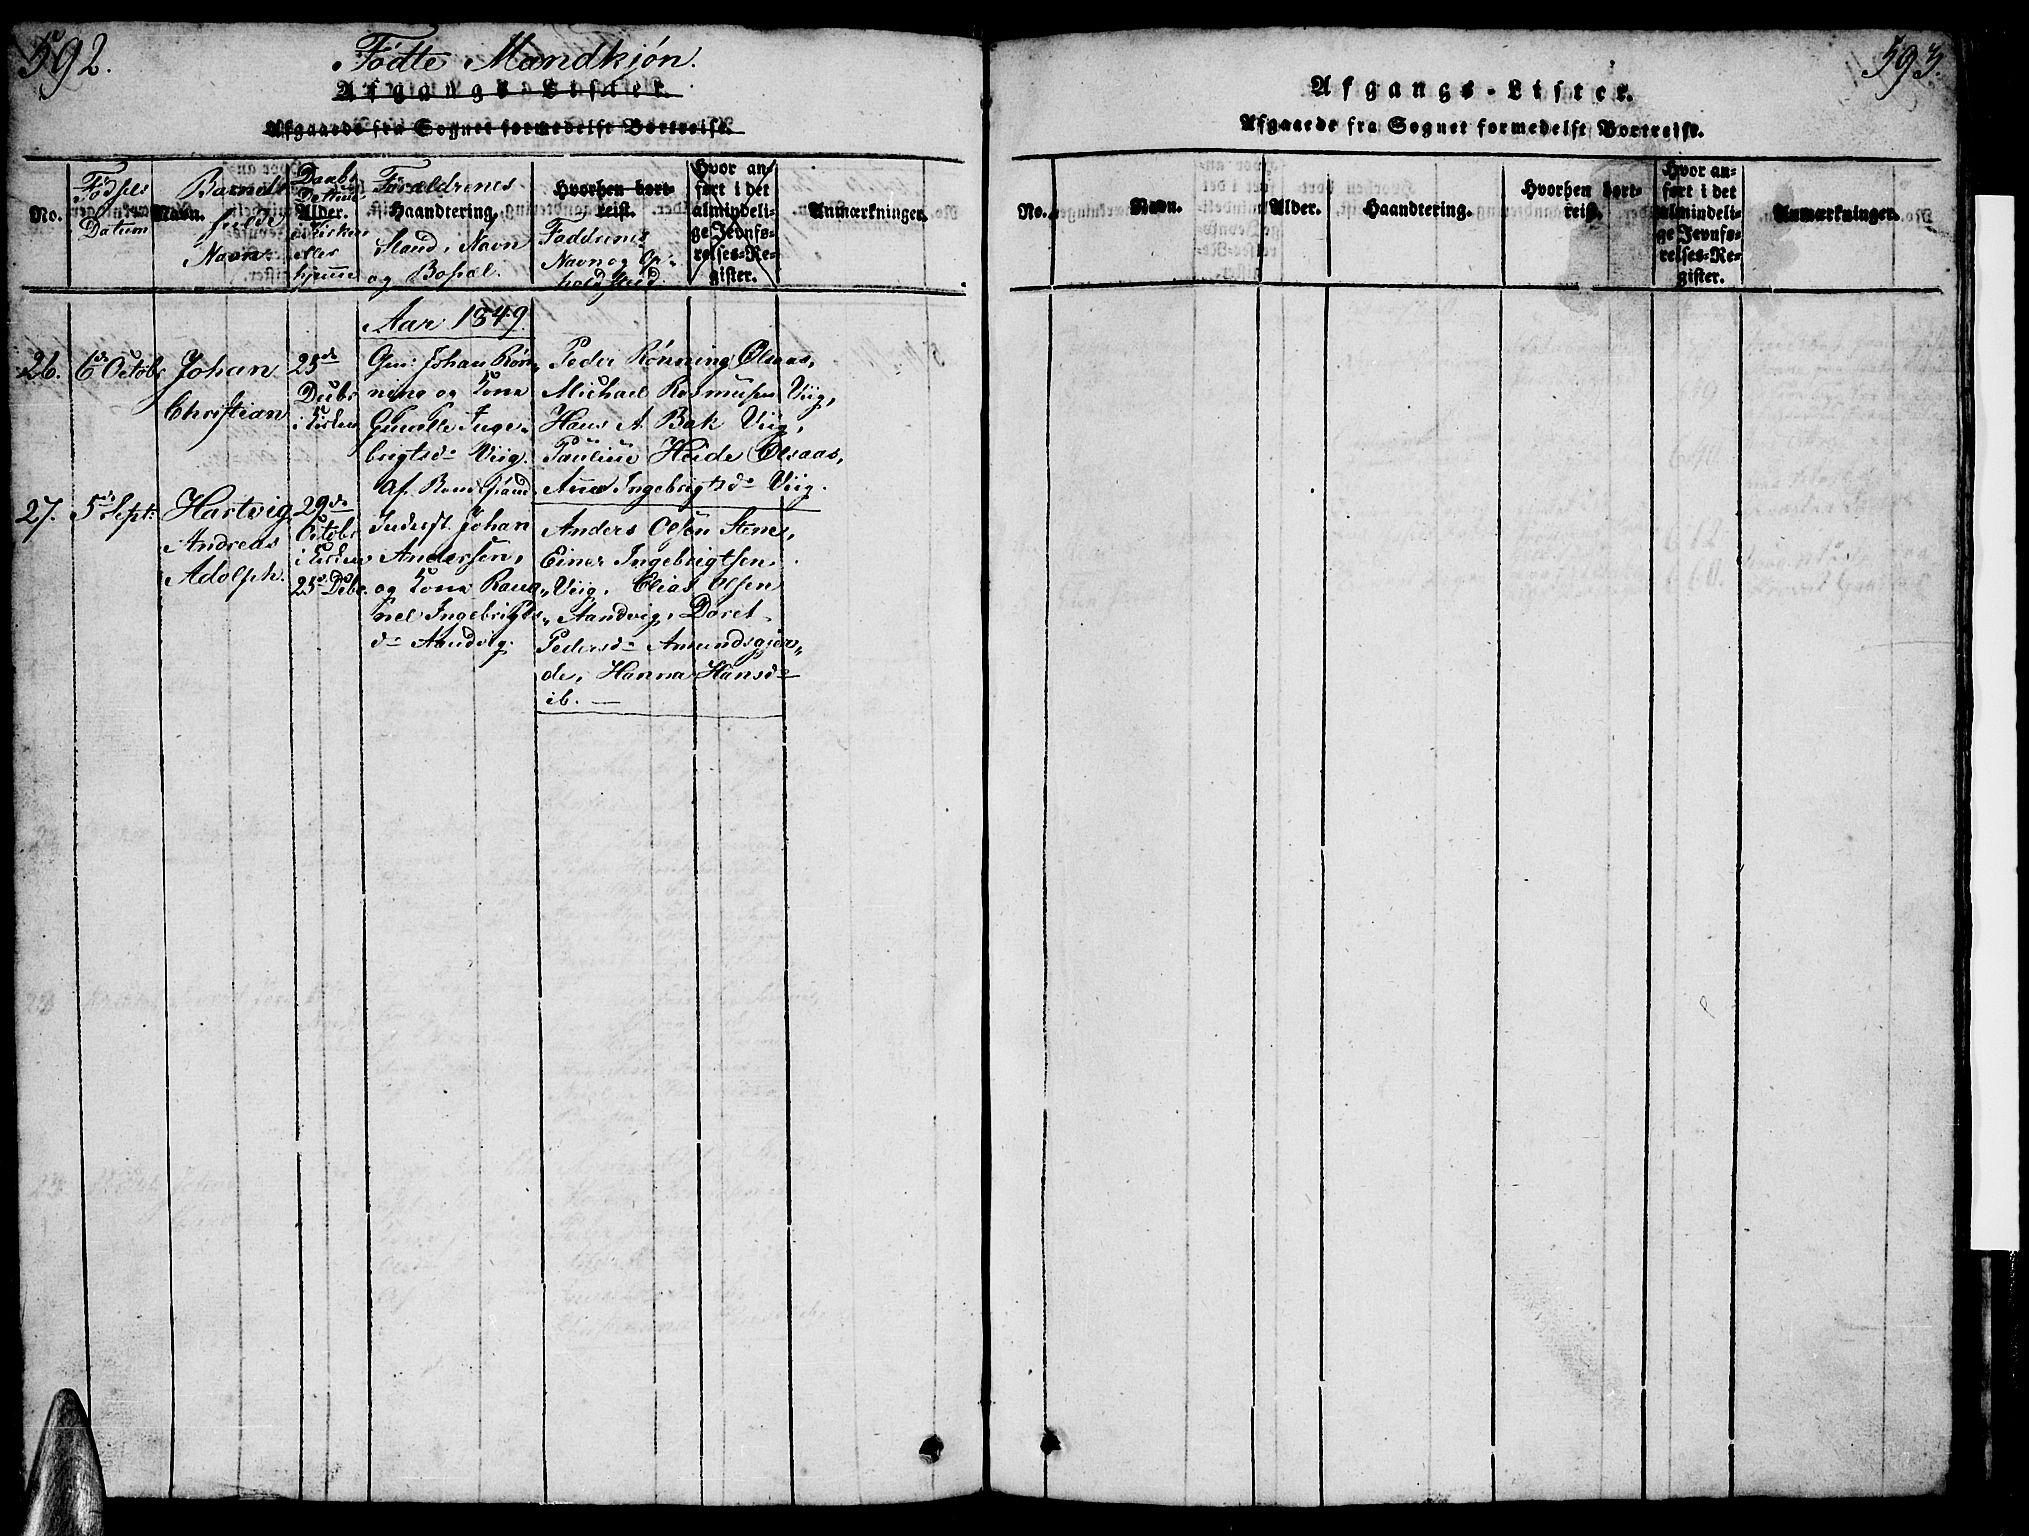 592.
Fødte Mandkjøn.
Afgangs-Lister.
Afgaaede fra Sognet formedelst Bortreise.
No.
Fødsels
Datum
Barnets
Navn.
fulde
Navn.
Daabs
Alder.
Forældrenes
Haandtering,
Stand, Navn
og Bopæl.
Hvorhen bort-
reist.
Faddrenes
Navn og Op-
holdsted.
Hvor an-
ført i det
almindeli-
ge Jevnfø-
relses-Re-
gister.
Anmærkninger.
Aar 1849.
26.
6te Octobr
Johan
Christian
25de
Decbr
i Kirken
Johan Røn-
ning og Kona
Ingebrigtsd. Viig.
Peder Rønning Olsaas,
Michael Rasmussen Viig,
Hans A. Bak Viig,
Pauline Heide Olsaas,
Anna Ingebrigtsd. Viig.
27.
5te Sept.
Hartvig
Andreas
Adolph.
29de
Octobr
i Kirken
25de Decbr.
Inderst. Johan
Andersen,
og Kona
nel Ingebrigts-
d. Aandvig.
Anders Olsen Stene,
Einer Ingebrigtsen
Viig, Elias Olsen
Aandvig, Doret
Pedersd. Amundsgjer-
de, Hanna Hansd.
ib. —
593.
Afgangs-Lister.
Afgaaede fra Sognet formedelst Bortreise.
No.
Navn.
Alder.
Haandtering.
Hvorhen bort-
reist.
Hvor an-
ført i det
almindeli-
ge Jevnfø-
relses-Re-
gister.
Anmærkninger.